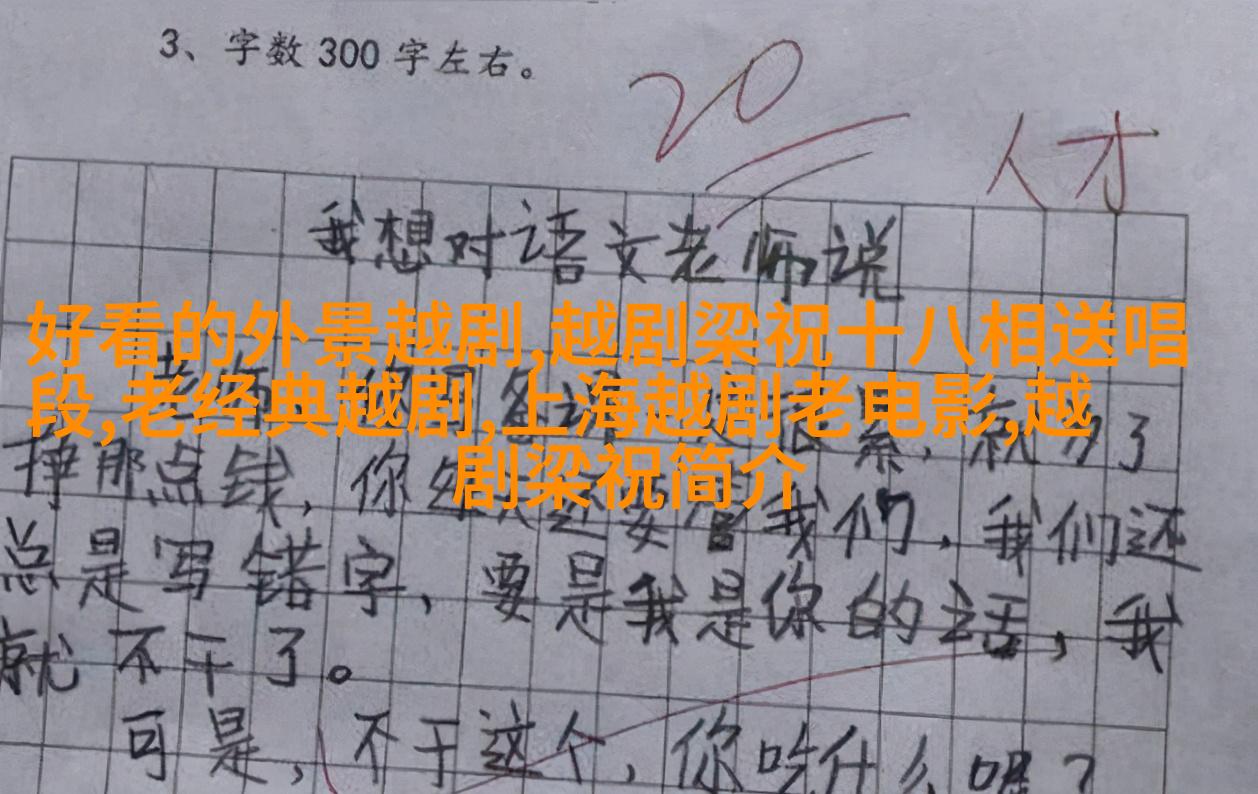 3、字数300字左右。
20
人才
我想对语文老师说
好看的外景越剧,越剧梁祝十八相送唱
段,老经典越剧,上海越剧老电影,越
剧梁祝简介
挣那点钱,你
我们,我们还
总是写错字,要是我是你的话,我
就不干了。
可是,不干这个,你吃什么呢?